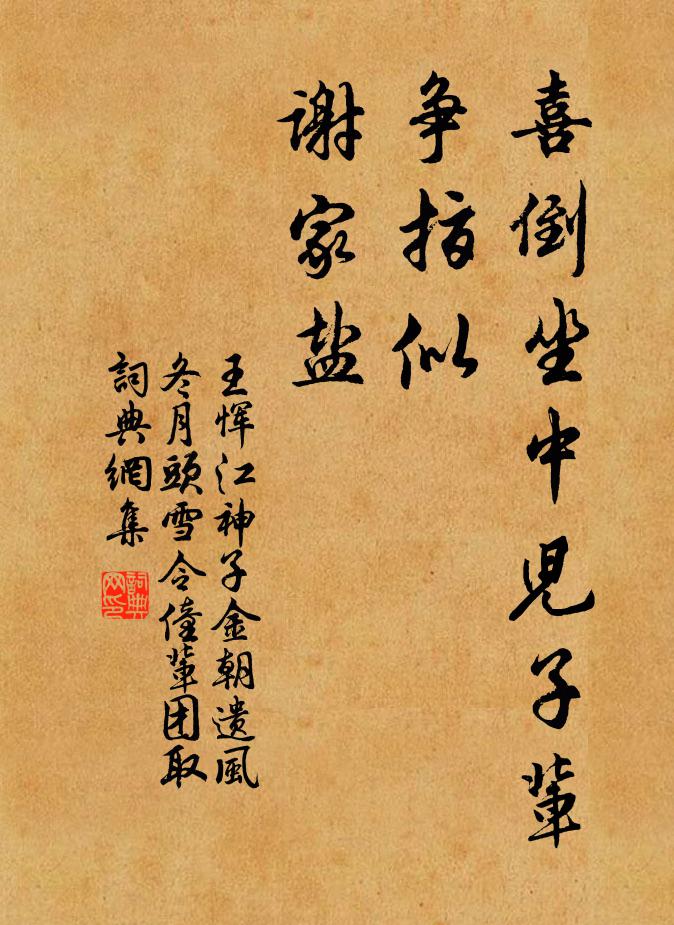 喜倒坐中児子輩
争指似
谢家盐
王恽江神子金朝遗風
冬月頭雪令僮輩团取
詞典網集
詞典
网印